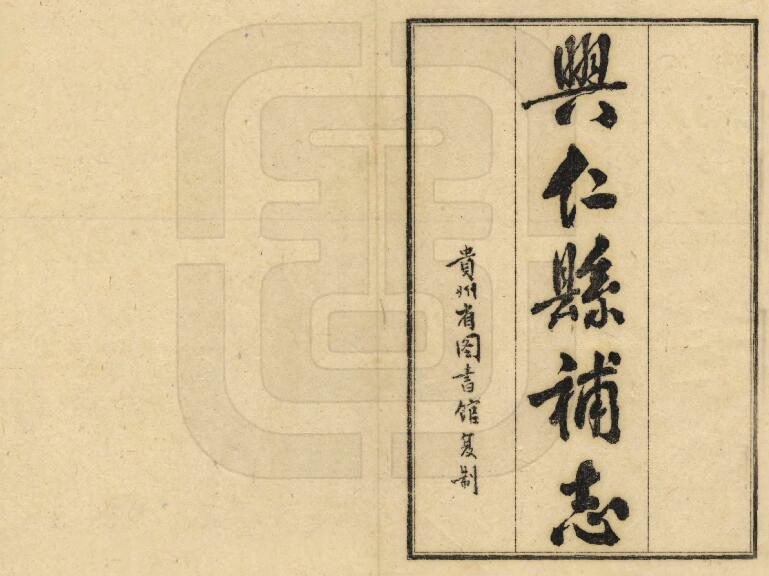 興仁縣補志
貴州省图書馆复制